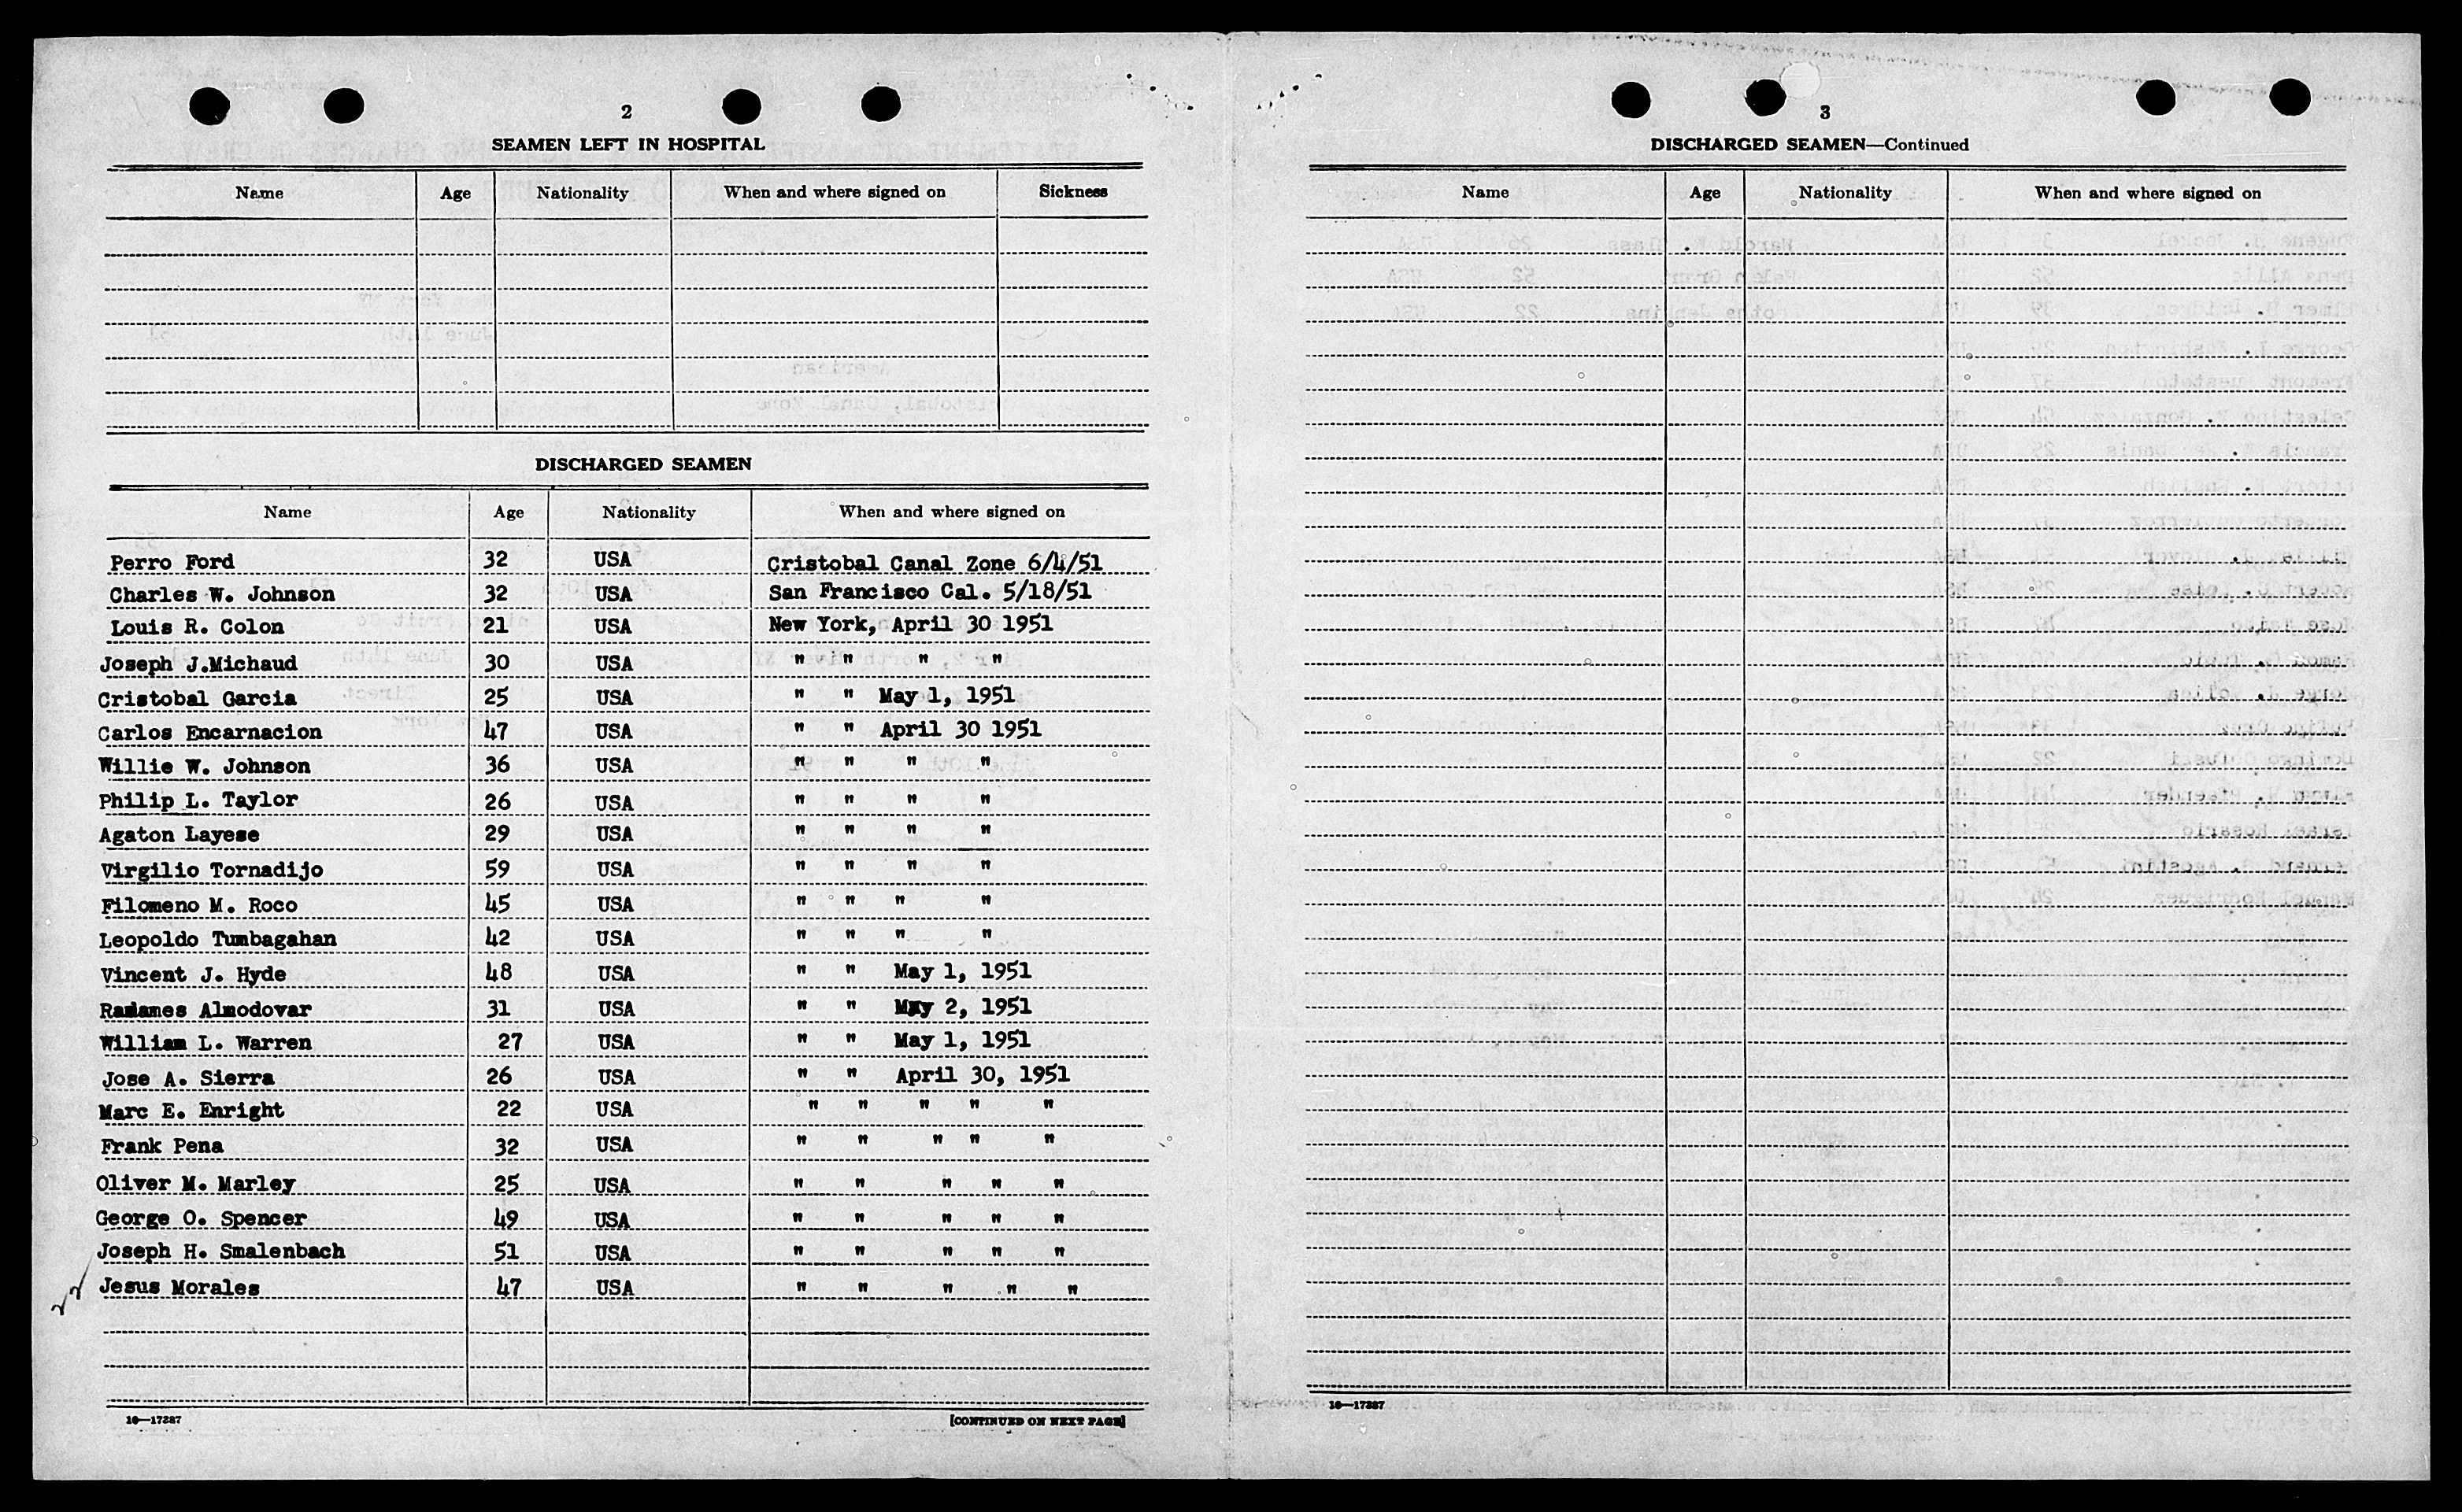 2
SEAMEN LEFT IN HOSPITAL
Name Age Nationality When and where signed on Sickness
DISCHARGED SEAMEN
Name Age Nationality When and where signed on
Perro Ford 32 USA Cristobal Canal Zone 6/4/51
Charles W. Johnson 32 USA San Francisco Cal. 5/18/51
Louis R. Colon 21 USA New York, April 30 1951
Joseph J.Michaud 30 USA " " " "
Cristobal Garcia 25 USA " " May 1, 1951
Carlos Encarnacion 47 USA " " April 30 1951
Willie W. Johnson 36 USA " " " "
Philip L. Taylor 26 USA " " " "
Agaton Layese 29 USA " " " "
Virgilio Tornadijo 59 USA " " " "
Filomeno M. Roco 45 USA " " " "
Leopoldo Tumbagahan 42 USA " " " "
Vincent J. Hyde 48 USA " " May 1, 1951
Almodovar 31 USA " " May 2, 1951
William L. Warren 27 USA " " May 1, 1951
Jose A. Sierra 26 USA " " April 30, 1951
Marc E. Enright 22 USA " " " " "
Frank Pena 32 USA " " " " "
Oliver M. Marley 25 USA " " " " "
George O. Spencer 49 USA " " " " "
Joseph H. Smalenbach 51 USA " " " " "
Jesus Morales 47 USA " " " " "
16—17287
[CONTINUED ON NEXT PAGE]
3
DISCHARGED SEAMEN—Continued
Name Age Nationality When and where signed on
16—17287